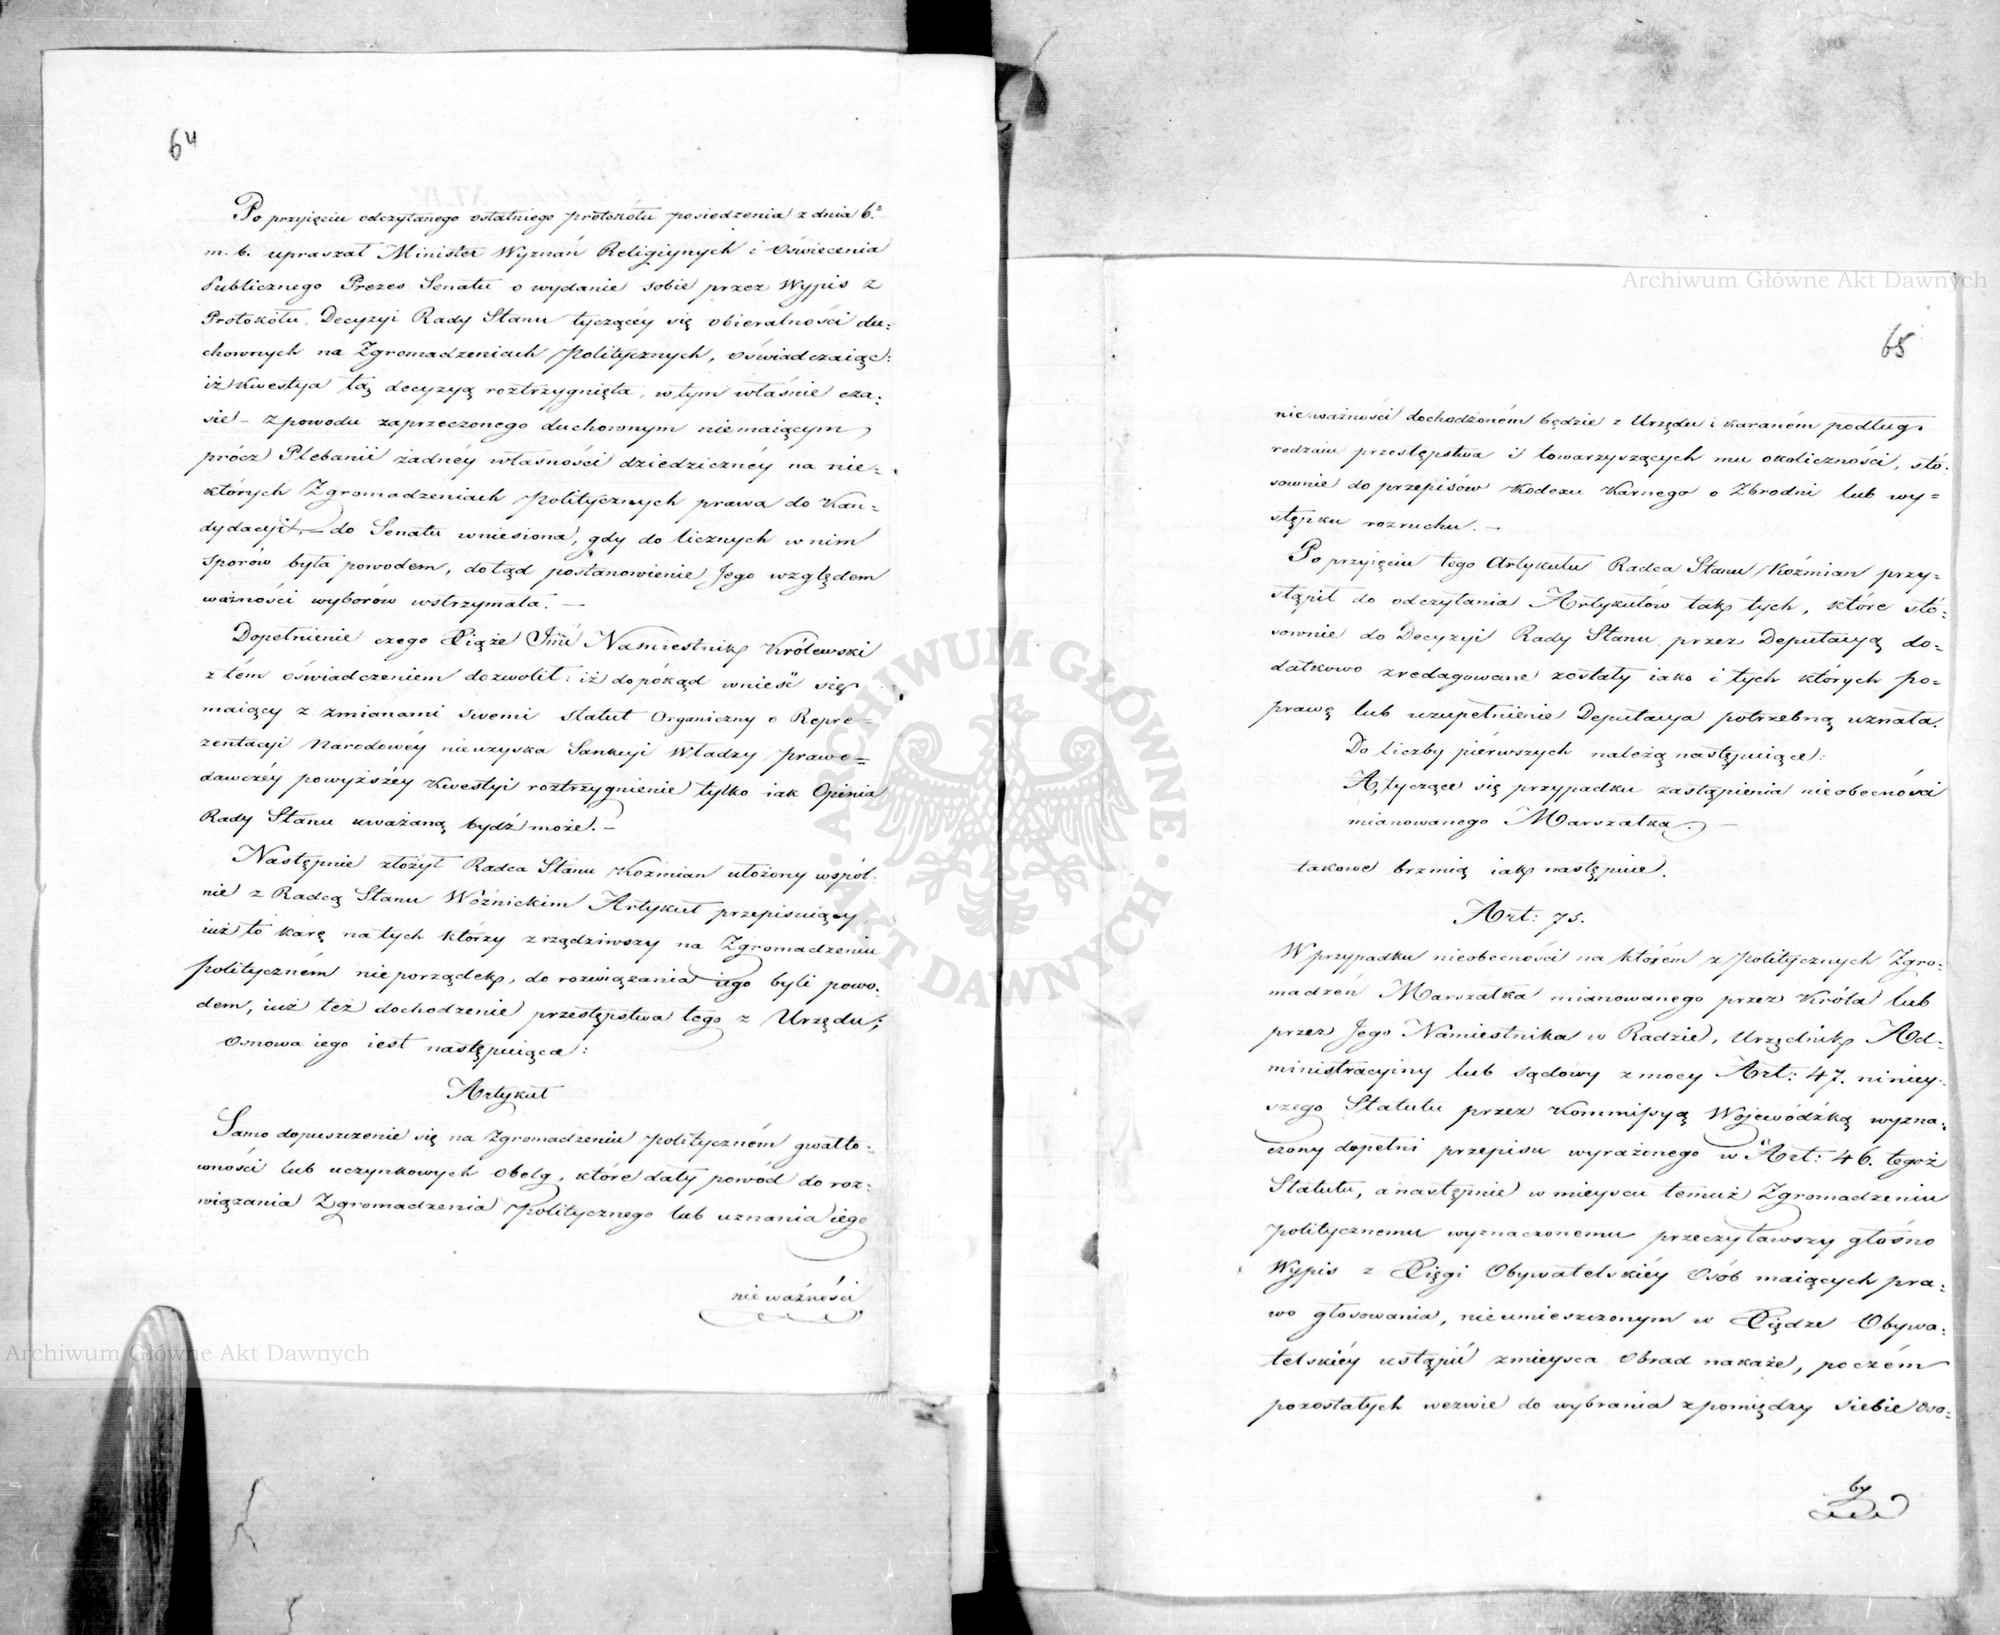 64
Po przyjęciu odczytanego ostatniego protokółu posiedzenia z dnia 6.º
m. b. upraszał Minister Wyznań Religiynych i Oświecenia
Publicznego Prezes Senatu o wydanie sobie przez Wypis z
Protokółu, Decyzyi Rady Stanu tyczącéy się obieralności du:
chownych na Zgromadzeniach Politycznych, oświadczaiąc:
iż kwestya tą decyzyą roztrzygnięta, w tym właśnie cza:
sie – z powodu zaprzeczonego duchownym niemaiącym
prócz Plebanii żadnéy własności dziedzicznéy na nie:
których Zgromadzeniach Politycznych prawa do Kan:
dydacyi, – do Senatu wniesiona, gdy do licznych w nim
sporów była powodem, dotąd postanowienie Jego względem
ważności wyborów wstrzymała. –
Dopełnienie czego Xiąże Jmć Namiestnik Królewski
z tém oświadczeniem dozwolił: iż dopókąd wnieść się
maiący z zmianami swemi Statut Organiczny o Repre=
zentacyi Narodowéy nieuzyska Sankcyi Władzy prawo=
dawczéy powyższéy Kwestyi roztrzygnienie tylko iak Opinia
Rady Stanu uważaną bydź może. –
Następnie złożył Radca Stanu Koźmian ułożony wspól:
nie z Radcą Stanu Woźnickim Artykuł przepisuiący
iuż to karę na tych którzy zrządziwszy na Zgromadzeniu
polityczném nieporządek, do rozwiązania iego byli powo:
dem, iuż też dochodzenie przestępstwa tego z Urzędu;
Osnowa iego iest następuiąca:
Artykuł
Samo dopuszczenie się na Zgromadzeniu polityczném gwałto:
wności lub uczynkowych obelg, które dały powód do roz:
wiązania Zgromadzenia Politycznego lub uznania iego
nieważności
65
nieważności dochodzoném będzie z Urzędu i karaném podług
rodzaiu przestępstwa i towarzyszących mu okoliczności, stó:
sownie do przepisów Kodexu Karnego o Zbrodni lub wy=
stępku rozruchu. –
Po przyjęciu tego Artykułu Radca Stanu Koźmian przy=
stąpił do odczytania Artykułów tak tych, które stó:
sownie do Decyzyi Rady Stanu przez Deputacyą do=
datkowo zredagowane zostały iako i tych których po=
prawę lub uzupełnienie Deputacya potrzebną uznała.
Do liczby piérwszych należą następuiące:
A, tyczące się przypadku zastąpienia nieobecności
mianowanego Marszałka. –
takowe brzmią iak następuie.
Art: 75.
W przypadku nieobecności na którém z Politycznych Zgro=
madzeń Marszałka mianowanego przez Króla lub
przez Jego Namiestnika w Radzie, Urzędnik Ad=
ministracyiny lub sądowy z mocy Art: 47. ninieÿ:
szego Statutu przez Kommissyą Wojewódzką wyzna:
czony dopełni przepisu wyrażonego w Art: 46. tegoż
Statutu, a następnie w mieyscu temuż Zgromadzeniu
politycznemu wyznaczonemu przeczytawszy głośno
Wypis z Xięgi Obywatelskiéy Osób maiących pra:
wo głosowania, nieumieszczonym w Xiędze Obywa:
telskiéy ustąpić z mieysca Obrad nakaże, poczém
pozostałych wezwie do wybrania z pomiędzy siebie Oso=
by
Archiwum Główne Akt Dawnych
Archiwum Główne Akt Dawnych
ARCHIWUM GŁÓWNE · AKT DAWNYCH ·